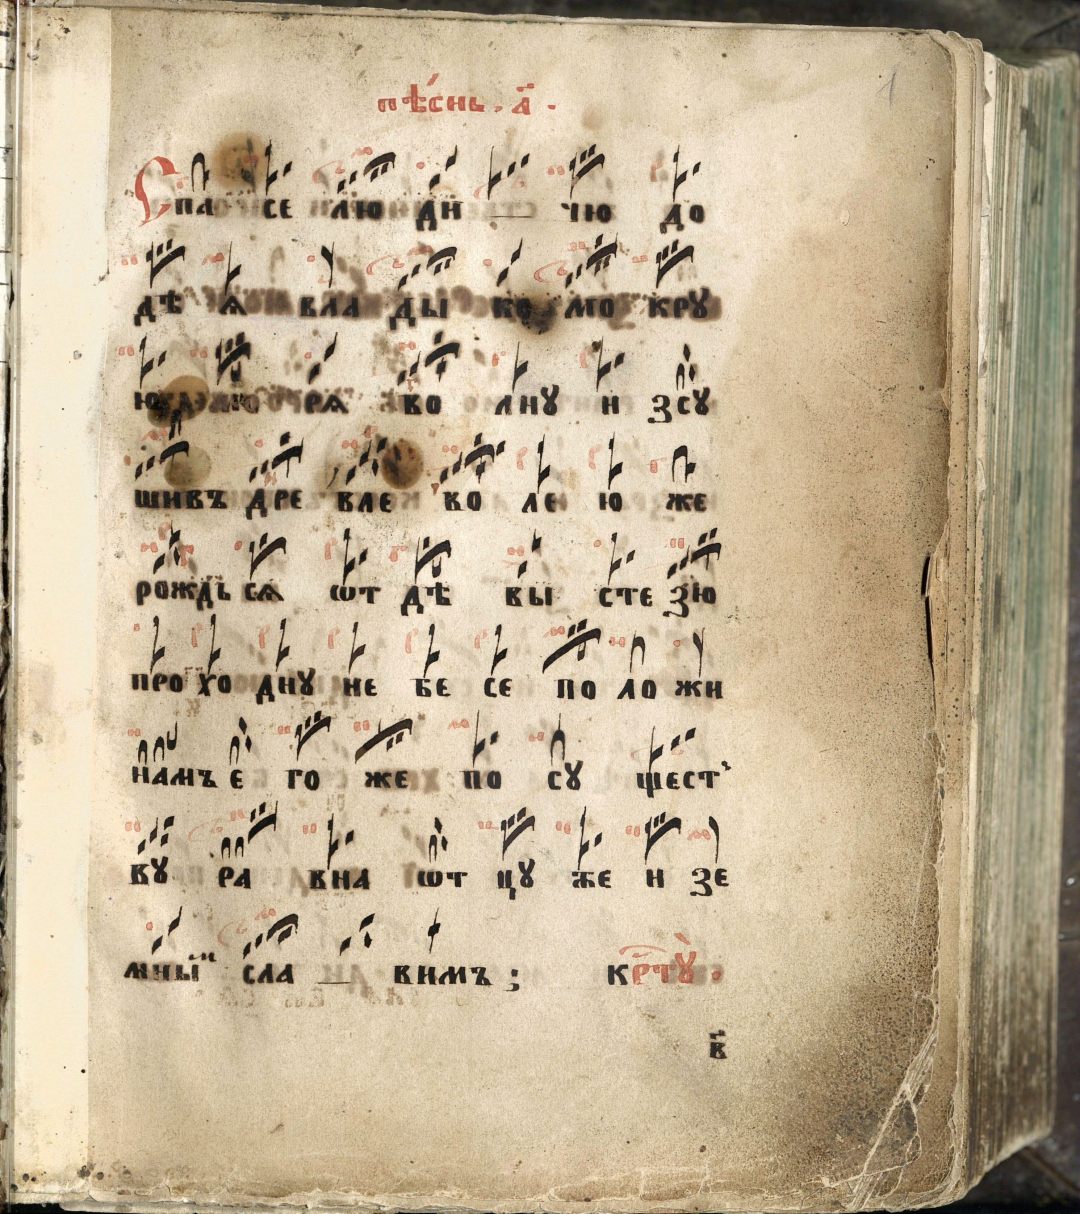 пѣснь. а҃.
Спа се лю ди — чю до
дѣ я вла ды ко мо кру
ю рѧ во лну и зсу
шивъ дре вле во ле ю же
рождь сѧ ѿт дѣ вы сте зю
про хо дну не бе се по ло жи
намъ е го же по су щест
ву ра вна ѿт цу же и зе
мны сла — вимъ ; крту.
в҃
1